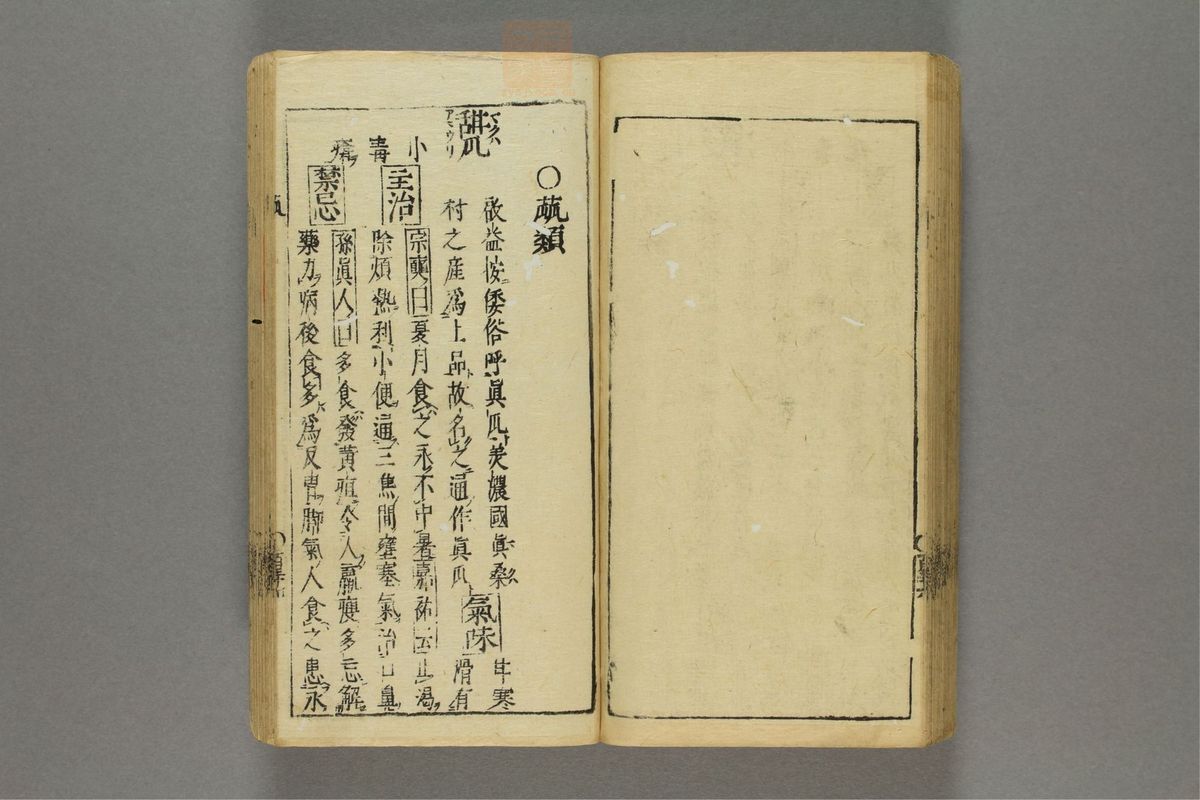 〇蓏類
甜瓜 アマウリ 啟益按倭俗呼眞瓜美濃國眞桑
村之産爲上品故名之通作眞瓜 氣味 甘寒
滑有
小毒 主治 宗奭曰夏月食之永不中暑嘉祐云止渴
除煩熱利小便通三焦間壅塞氣治口鼻
瘡 禁忌 孫眞人曰多食發黃疸令人羸瘦多忘解
藥力病後食多爲反胃脚氣人食之患永